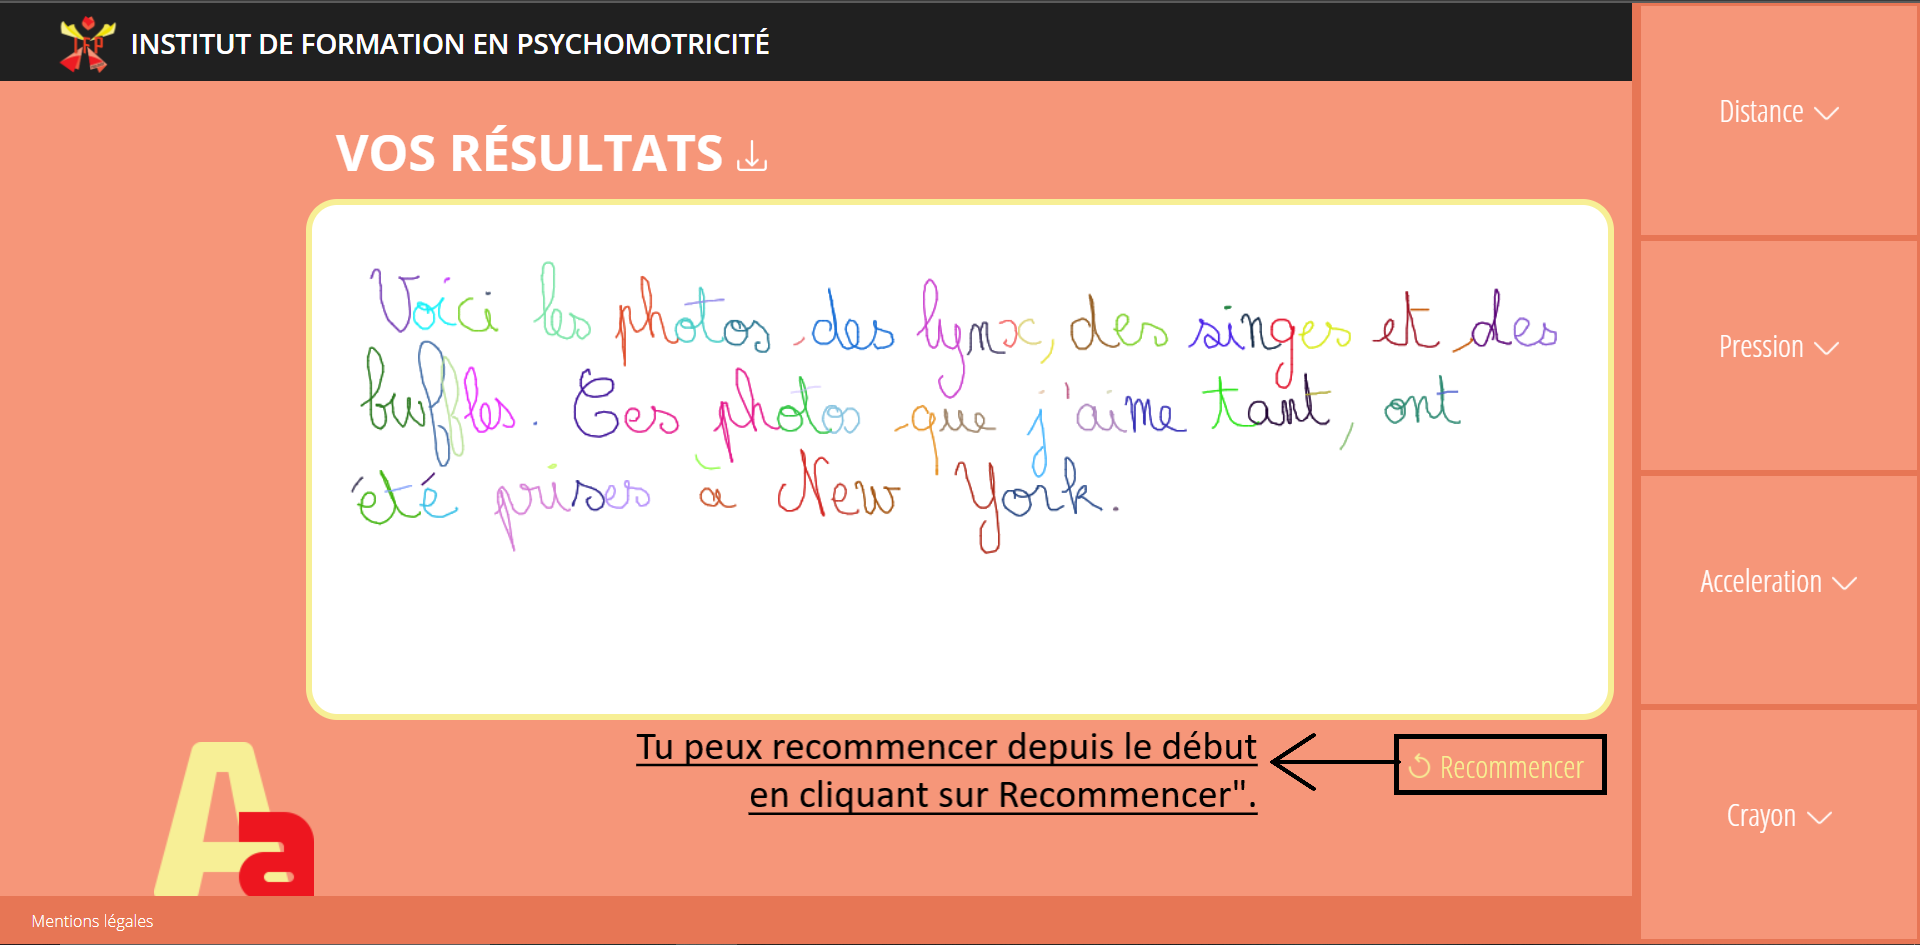 INSTITUT DE FORMATION EN PSYCHOMOTRICITÉ
VOS RÉSULTATS
Voici les photos des lynx, des singes et des
buffles. Ces photos que j'aime tant, ont
été prises à New York.
Tu peux recommencer depuis le début
en cliquant sur Recommencer".
Recommencer
Aa
Mentions légales
Distance
Pression
Acceleration
Crayon